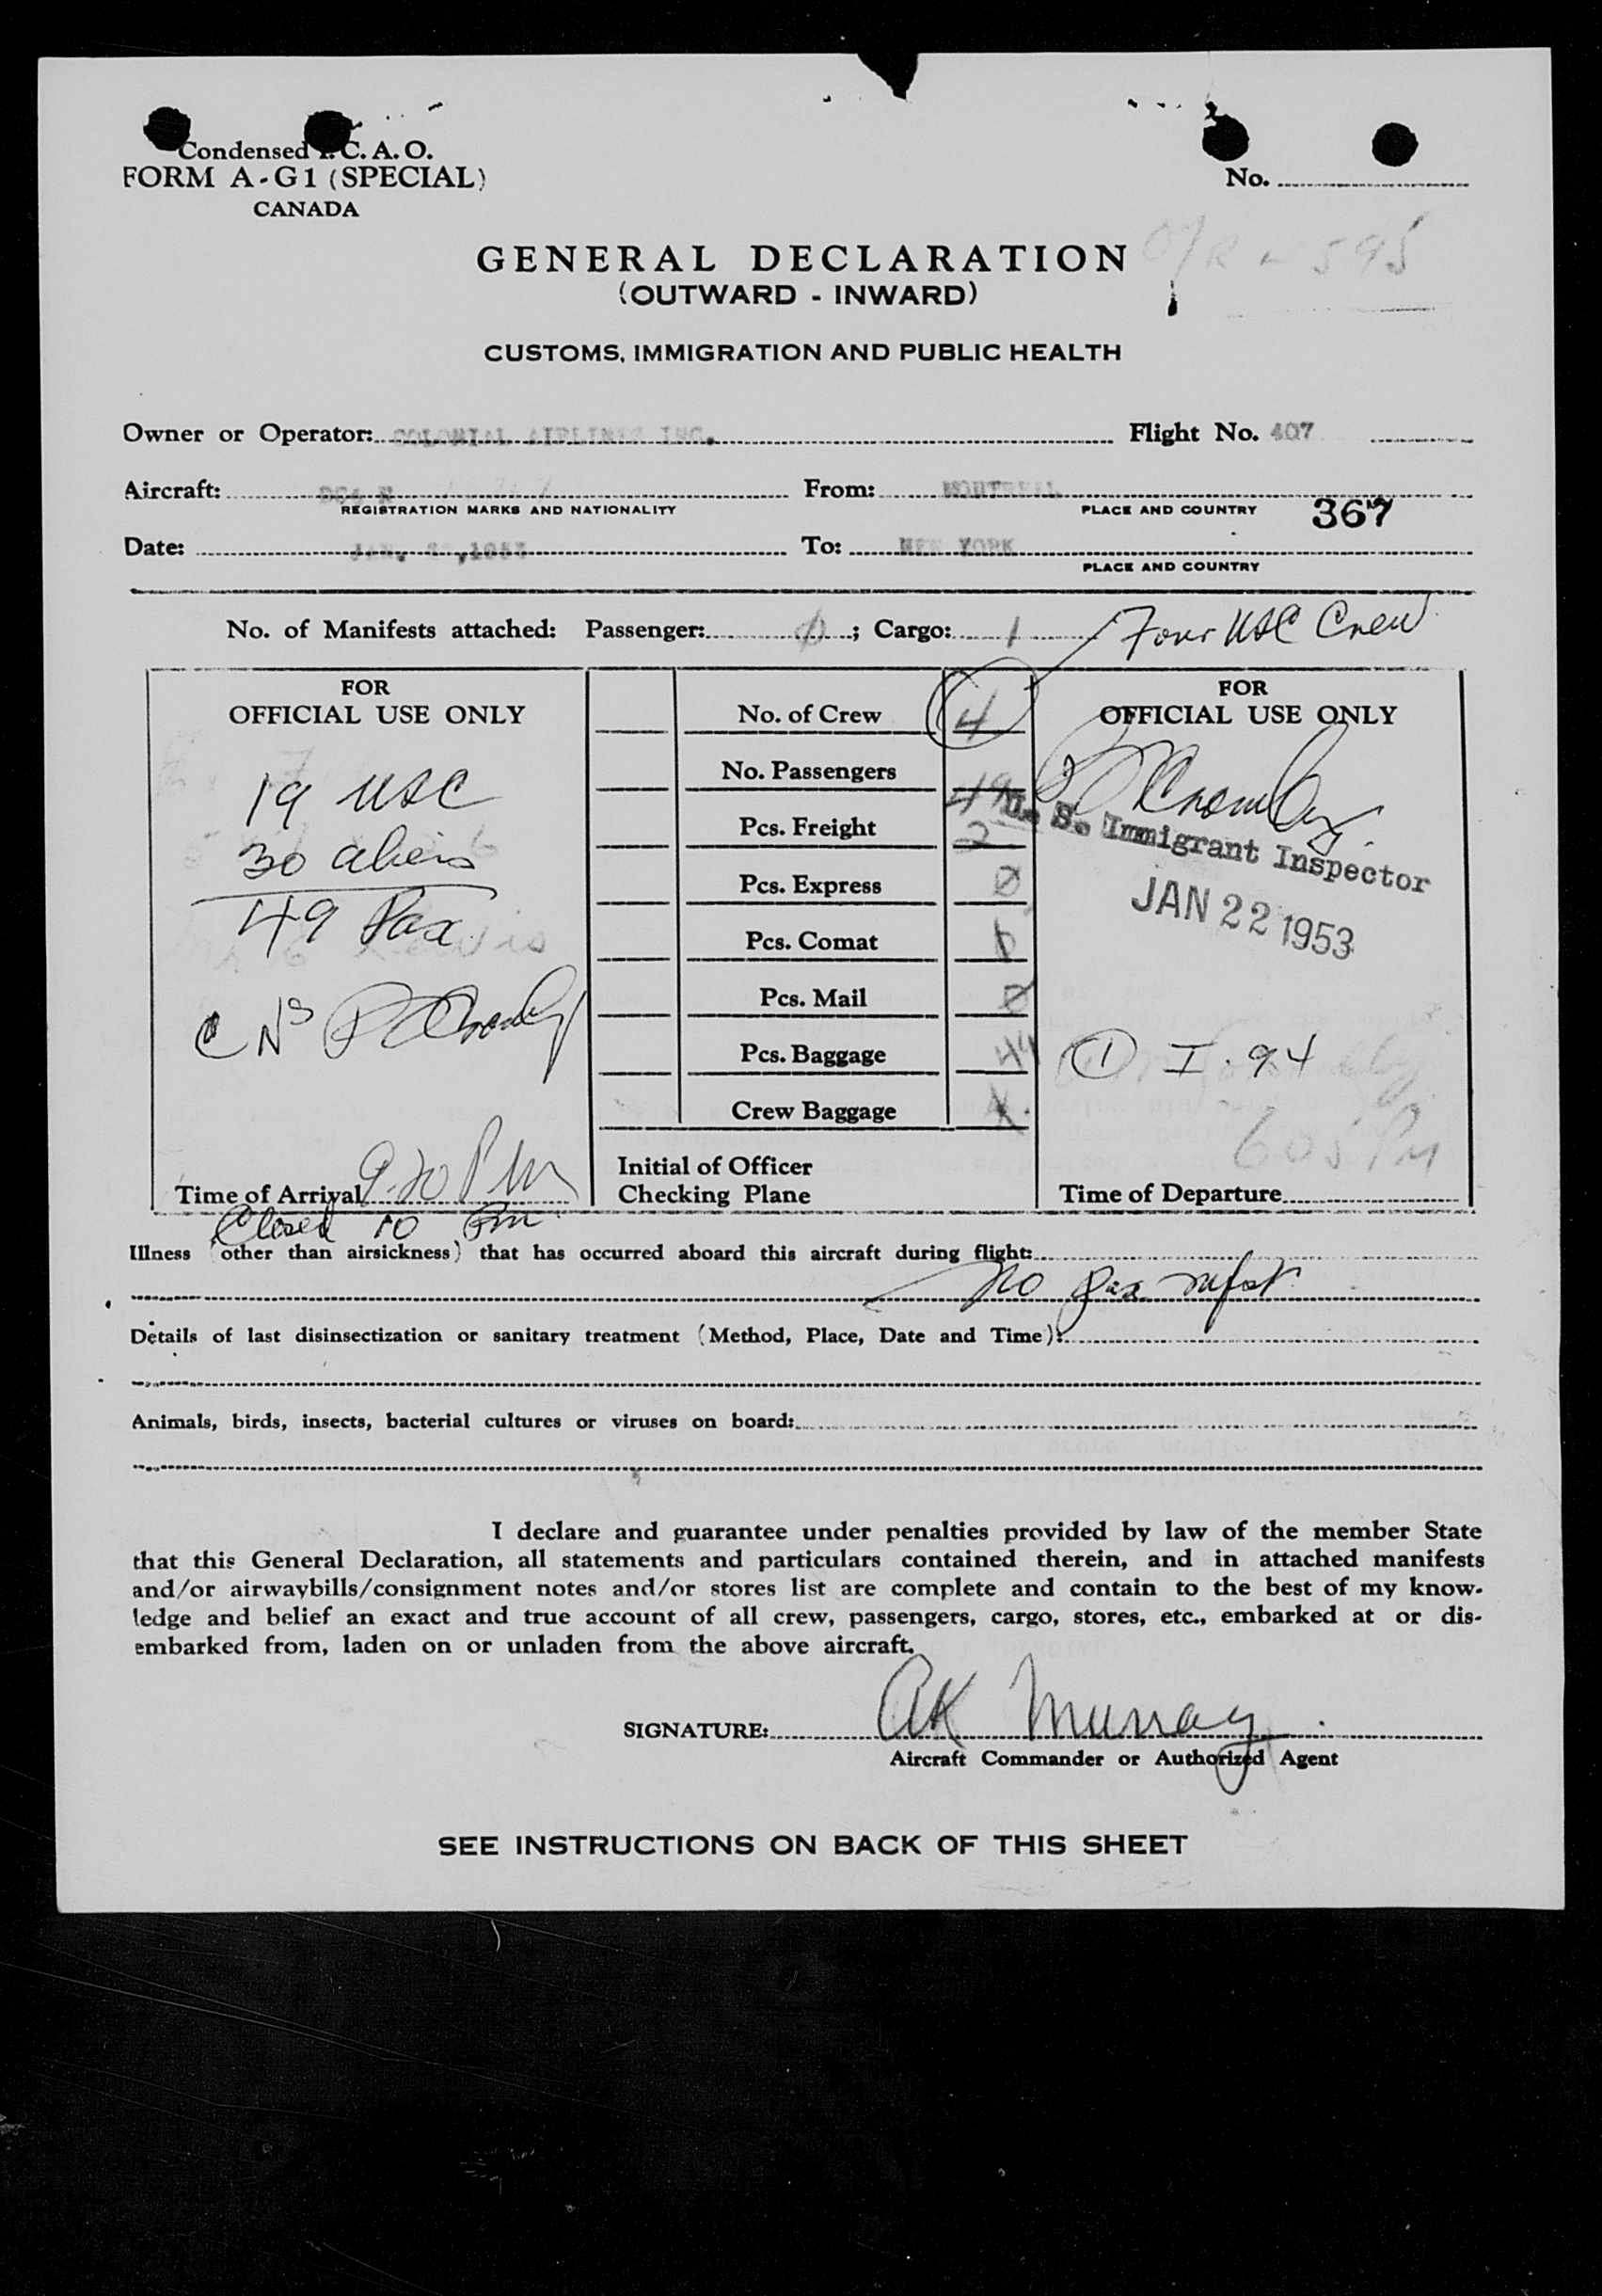 Condensed I. C. A. O.
FORM A-G1 (SPECIAL)
CANADA
No.
GENERAL DECLARATION
595
(OUTWARD - INWARD)
CUSTOMS, IMMIGRATION AND PUBLIC HEALTH
Owner or Operator: COLONIAL AIRLINES INC. Flight No. 407
Aircraft: DC4 N From: MONTREAL
REGISTRATION MARKS AND NATIONALITY PLACE AND COUNTRY 367
Date: JAN. ,1953 To: NEW YORK
PLACE AND COUNTRY
No. of Manifests attached: Passenger: 0; Cargo: 1 Four USC Crew
FOR
OFFICIAL USE ONLY
19 USC
30 aliens
49 Pax
Time of Arrival 9.20 PM
Closed 10 Pm
No. of Crew 4
No. Passengers 49
Pcs. Freight 2
Pcs. Express 0
Pcs. Comat
Pcs. Mail 0
Pcs. Baggage 44
Crew Baggage
Initial of Officer
Checking Plane
FOR
OFFICIAL USE ONLY
U. S. Immigrant Inspector
JAN 22 1953
1 I-94
605 PM
Time of Departure
Illness (other than airsickness) that has occurred aboard this aircraft during flight:
No pax
Details of last disinsectization or sanitary treatment (Method, Place, Date and Time):
Animals, birds, insects, bacterial cultures or viruses on board:
I declare and guarantee under penalties provided by law of the member State
that this General Declaration, all statements and particulars contained therein, and in attached manifests
and/or airwaybills/consignment notes and/or stores list are complete and contain to the best of my know-
ledge and belief an exact and true account of all crew, passengers, cargo, stores, etc., embarked at or dis-
embarked from, laden on or unladen from the above aircraft.
SIGNATURE: AK Murray
Aircraft Commander or Authorized Agent
SEE INSTRUCTIONS ON BACK OF THIS SHEET